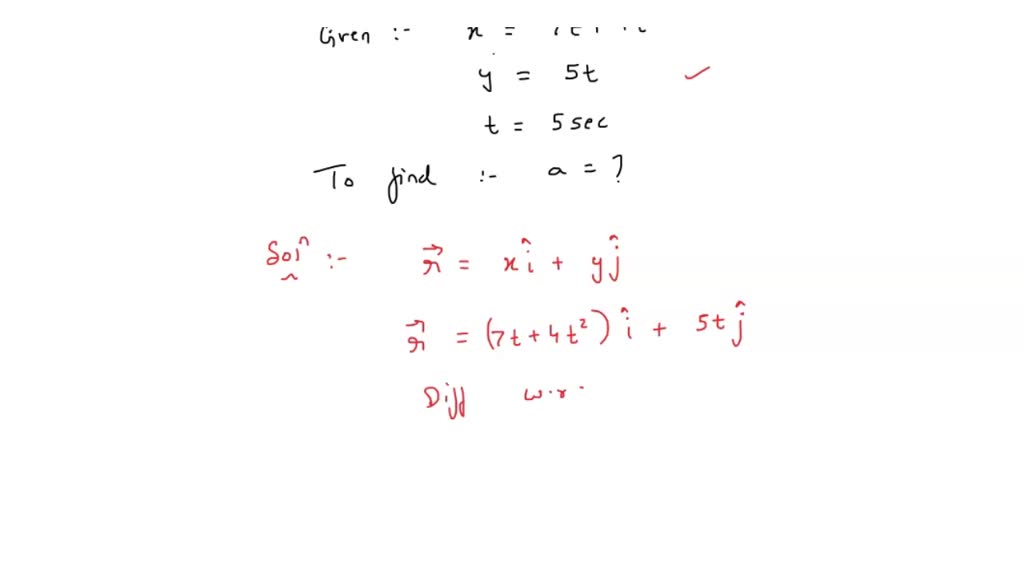 Given :- x =
y = 5t
t = 5 sec
To find :- a = ?
Solⁿ :- r⃗ = x î + y ĵ
r⃗ = (7t + 4t²) î + 5t ĵ
Diff w.r.